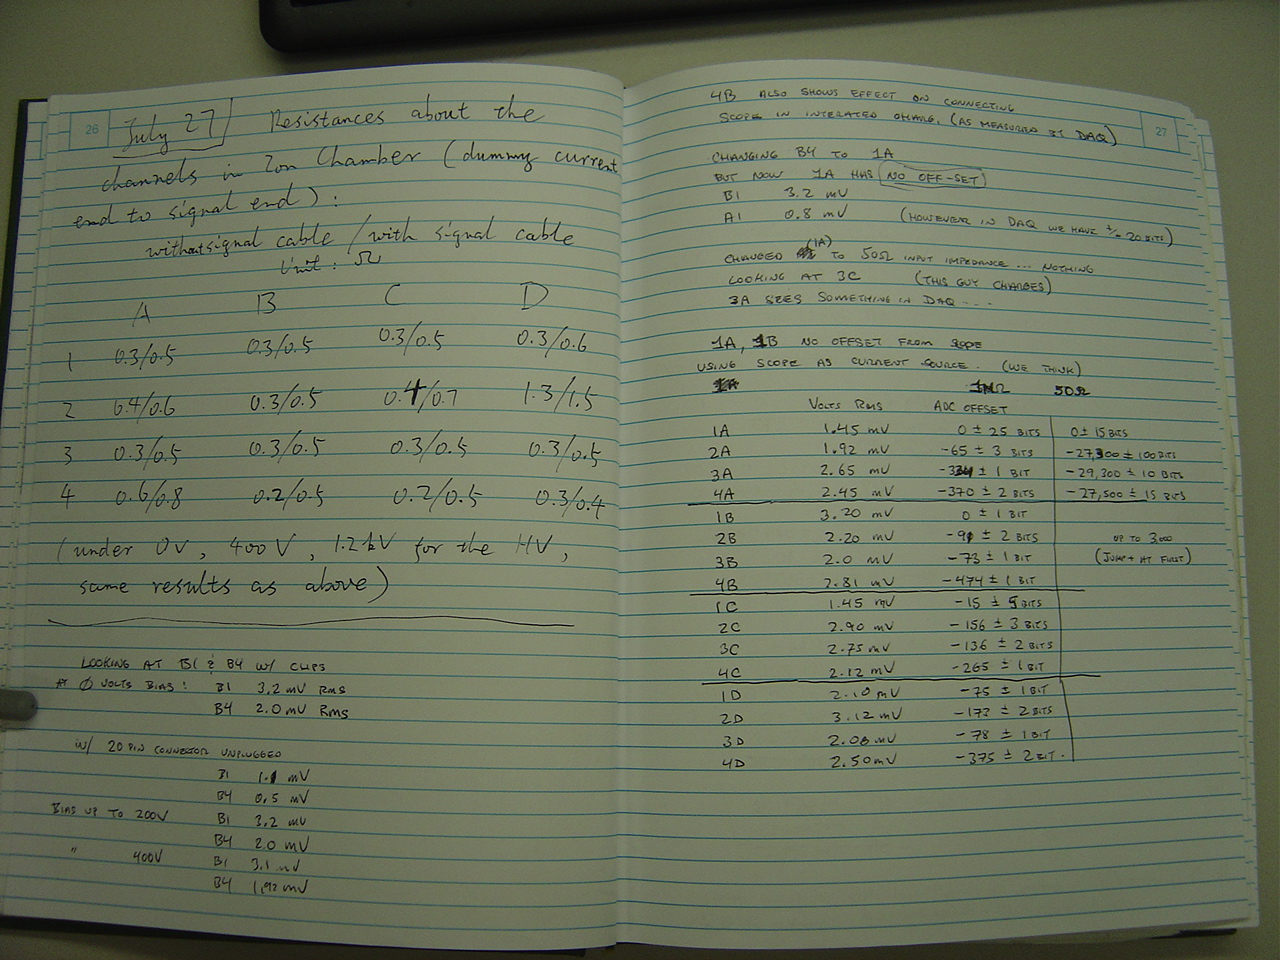 26
July 27 Resistances about the
channels in Ion Chamber (dummy current
end to signal end) :
without signal cable / with signal cable
Unit : Ω
A B C D
1 0.3/0.5 0.3/0.5 0.3/0.5 0.3/0.6
2 0.4/0.6 0.3/0.5 0.4/0.7 1.3/1.5
3 0.3/0.5 0.3/0.5 0.3/0.5 0.3/0.5
4 0.6/0.8 0.2/0.5 0.2/0.5 0.3/0.4
(under 0V, 400V, 1.2kV for the HV,
same results as above)
LOOKING AT B1 & B4 W/ CLIPS
AT Ø VOLTS BIAS: B1 3.2 mV RMS
B4 2.0 mV RMS
W/ 20 PIN CONNECTOR UNPLUGGED
B1 1.1 mV
B4 0.5 mV
BIAS UP TO 200V B1 3.2 mV
B4 2.0 mV
" 400V B1 3.1 mV
B4 1.92 mV
27
4B ALSO SHOWS EFFECT ON CONNECTING
SCOPE IN INTERATED CHARG. (AS MEASURED BY DAQ)
CHANGING B4 TO 1A
BUT NOW 1A HAS NO OFF-SET
B1 3.2 mV
A1 0.8 mV (HOWEVER IN DAQ WE HAVE +/- 20 BITS)
CHANGED (1A) TO 50Ω INPUT IMPEDANCE ... NOTHING
LOOKING AT 3C (THIS GUY CHANGES)
3A SEES SOMETHING IN DAQ ...
1A, 1B NO OFFSET FROM SCOPE
USING SCOPE AS CURRENT SOURCE. (WE THINK)
1MΩ 50Ω
VOLTS RMS ADC OFFSET
1A 1.45 mV 0 ± 25 BITS 0 ± 15 BITS
2A 1.92 mV -65 ± 3 BITS -27,300 ± 100 BITS
3A 2.65 mV -334 ± 1 BIT -29,300 ± 10 BITS
4A 2.45 mV -370 ± 2 BITS -27,500 ± 15 BITS
1B 3.20 mV 0 ± 1 BIT
2B 2.20 mV -91 ± 2 BITS UP TO 3000
3B 2.0 mV -73 ± 1 BIT (JUMP AT FIRST)
4B 2.81 mV -474 ± 1 BIT
1C 1.45 mV -15 ± 5 BITS
2C 2.90 mV -156 ± 3 BITS
3C 2.75 mV -136 ± 2 BITS
4C 2.12 mV -265 ± 1 BIT
1D 2.10 mV -75 ± 1 BIT
2D 3.12 mV -173 ± 2 BITS
3D 2.08 mV -78 ± 1 BIT
4D 2.50 mV -375 ± 2 BIT.